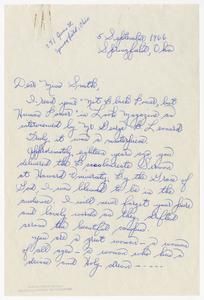 241 June St
Springfield, Ohio
5 September 1966
Springfield, Ohio
Dear Miss Smith,
I read your "Not Black Power but
Human Power" in Look Magazine as
interviewed by Mr George B. Leonard
Truly it was a masterpiece.
Approximately eighteen years ago you
delivered the Baccalaureate Sermon
at Howard University. By the Grace of
God, I was blessed to be in the
audience. I will never forget your pure
and lovely words as they drifted
across the beautiful campus.
You are a great woman - a woman
of all ages - a woman who has a
divine and holy dream -----